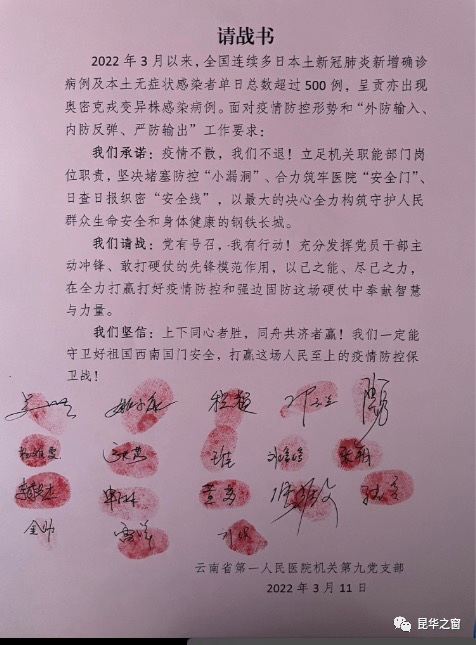 请战书
2022年3月以来，全国连续多日本土新冠肺炎新增确诊
病例及本土无症状感染者单日总数超过500例，呈贡亦出现
奥密克戎变异株感染病例。面对疫情防控形势和“外防输入、
内防反弹、严防输出”工作要求：
我们承诺：疫情不散，我们不退！立足机关职能部门岗
位职责，坚决堵塞防控“小漏洞”、合力筑牢医院“安全门”、
日查日报织密“安全线”，以最大的决心全力构筑守护人民
群众生命安全和身体健康的钢铁长城。
我们请战：党有号召，我有行动！充分发挥党员干部主
动冲锋、敢打硬仗的先锋模范作用，以己之能、尽己之力，
在全力打赢打好疫情防控和强边固防这场硬仗中奉献智慧
与力量。
我们坚信：上下同心者胜，同舟共济者赢！我们一定能
守卫好祖国西南国门安全，打赢这场人民至上的疫情防控保
卫战！
云南省第一人民医院机关第九党支部
2022年3月11日
昆华之窗